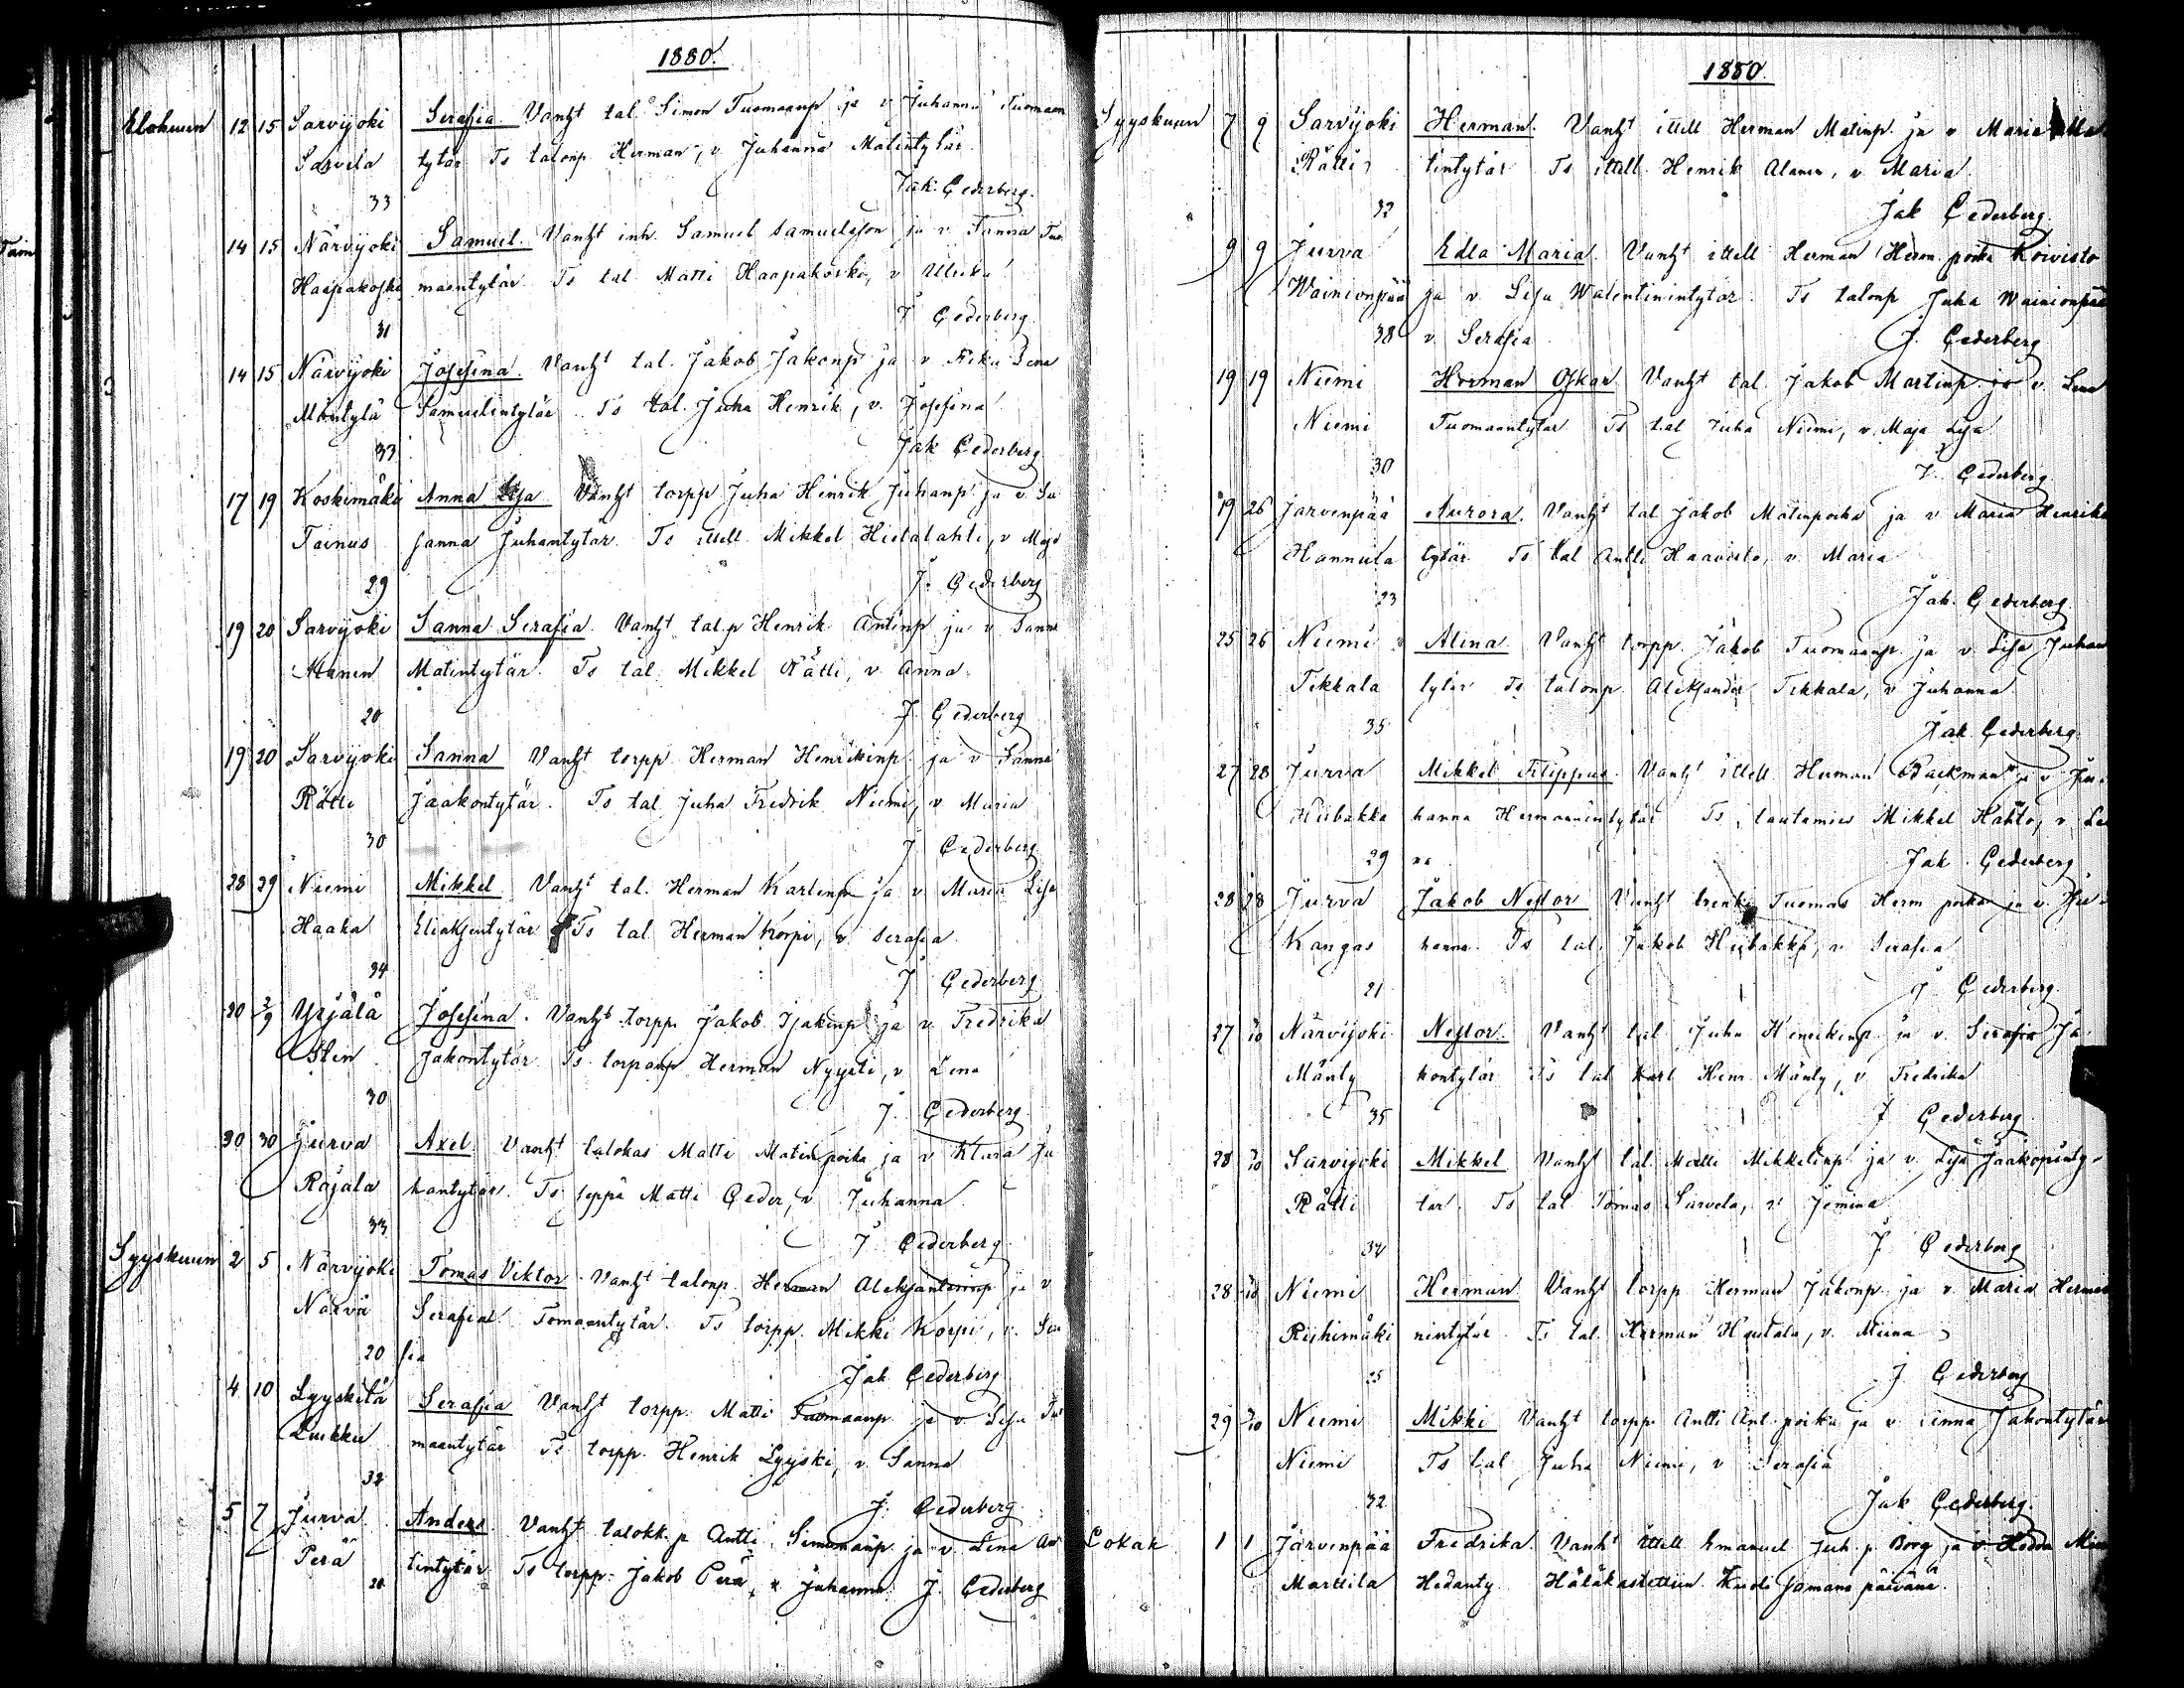 1880.
Elokuun 12 15 Sarvijoki Serafia. Vanht tal. Simon Tuomaanp ja v Juhanna Tuomaan
Sarvela tytär Ts talonp Herman, v. Juhanna Matintytär.
33 Jak. Cederberg.
14 15 Närvijoki Samuel. Vanht inh. Samuel Samuelsson ja v. Sanna Tuo
Haapakoski maantytär Ts tal Matti Haapakoski, v Ulrika
31 J Cederberg
14 15 Närvijoki Josefina. Vanht tal. Jakob Jakonp ja v Frika Lena
Mäntylä Samuelintytär. Ts tal. Juha Henrik, v. Josefina
33 Jak Cederberg
17 19 Koskimäki Anna Lisa Vanht torpp Juha Henrik Juhanp ja v. Su
Tainus sanna Juhantytär. Ts ittell Mikkel Hietalahti, v Maja
29 J. Cederberg
19 20 Sarvijoki Sanna Serafia. Vanht tal.p Henrik Antinp ja v Sanna
Alanen Matintytär. Ts tal. Mikkel Rätti, v Anna
20 J Cederberg
19 20 Sarvijoki Sanna Vanht torpp Herman Henrikinp ja v Sanna
Rätti Jaakontytär. Ts tal. Juha Fredrik Niemi, v Maria
30 J Cederberg
28 29 Niemi Mikkel Vanht tal. Herman Karlenp ja v Maria Lisa
Haaka Eliaksentytär Ts tal Herman Korpi, v Serafia
34 J Cederberg
20 2/9 Yrjälä Josefina. Vanht torpp Jakob Isakinp ja v Fredrika
Sten Jakontytär Ts torpanp Herman Nyysti, v Lena
30 J. Cederberg
30 30 Jurva Axel Vanht talokas Matti Matinpoika ja v Klara Ju
Rajala hantytär. Ts seppä Matti Ceder, v Juhanna
33 J Cederberg
Syyskuun 2 5 Närvijoki Tomas Viktor. Vanht talonp Herman Aleksanterinp ja v
Närvä Serafia Tomaantytär. Ts torpp. Mikki Korpi, v. So
20 fia Jak Cederberg
4 10 Lyyskilä Serafia Vanht torpp. Matti Tuomaanp ja v Lisa Tuo
Luukku maantytär Ts torpp. Henrik Lyyski, v Sanna
32 J. Cederberg
5 7 Jurva Anders Vanht talokk.p Antti Simonanp ja v. Lena An
Perä tintytär Ts torpp. Jakob Perä, v Juhanna J. Cederberg
20
1880.
Syyskuun 7 9 Sarvijoki Herman. Vanht ittell Herman Matinp. ja v Maria Ma
Rätti tintytär Ts ittell. Henrik Alanen, v Maria
32 Jak Cederberg
9 9 Jurva Edla Maria. Vanht ittell Herman Herm. poika Koivisto
Wainionpää ja v Lisa Walentinintytär. Ts talonp Juha Wainionpää
38 v Serafia J. Cederberg
19 19 Niemi Herman Oskar Vanht tal. Jakob Martinp ja v. Lena
Niemi Tuomaantytär Ts tal Juha Niemi, v. Maja Lisa
30 J Cederberg
19 26 Järvenpää Aurora. Vanht tal Jakob Matinpoika ja v Maria Henrikin
Hannula tytär Ts tal Antti Haavisto, v. Maria
23 Jak. Cederberg
25 26 Niemi Alina Vanht torpp. Jakob Tuomaanp ja v Lisa Juhan
Tikkala tytär Ts talonp Aleksander Tikkala, v Juhanna
35 Jak Cederberg
27 28 Jurva Mikkel Filippus. Vanht ittell Herman Backman ja v Ju-
Kiibakka hanna Hermanintytär Ts, lautamies Mikkel Hahto, v Le
29 na Jak Cederberg
28 28 Jurva Jakob Nestor Vanht renki Tuomas Herm poika ja v. Ju-
Kangas hanna Ts tal. Jakob Kiibakka, v Serafia
21 J Cederberg
27 /10 Närvijoki Nestor. Vanht tal Juha Henrikinp ja v. Serafia Ja
Mänty kontytär Ts tal Karl Henr Mänty, v Fredrika
35 J Cederberg
28 /10 Sarvijoki Mikkel Vanht tal Matti Mikkelinp ja v Lisa Jaakopinty-
Rätti tär. Ts tal Tomas Sarvela, v Jemina
34 J Cederberg
28 /10 Niemi Herman Vanht torpp Herman Jakonp ja v. Maria Herma
Riihimäki nintytär Ts tal. Herman Hautala, v. Miina
25 J Cederberg
29 /10 Niemi Mikki Vanht torpp Antti Ant. poika ja v. Sanna Jakontytär
Niemi Ts tal Juha Niemi, v Serafia
32 Jak Cederberg.
Lokak 1 1 Järvenpää Fredrika. Vanht ittell Emanuel Juh. p. Borg ja v. Hedda Mia
Marttila Hedanty Hätäkastettiin. Kuoli samana päivänä.